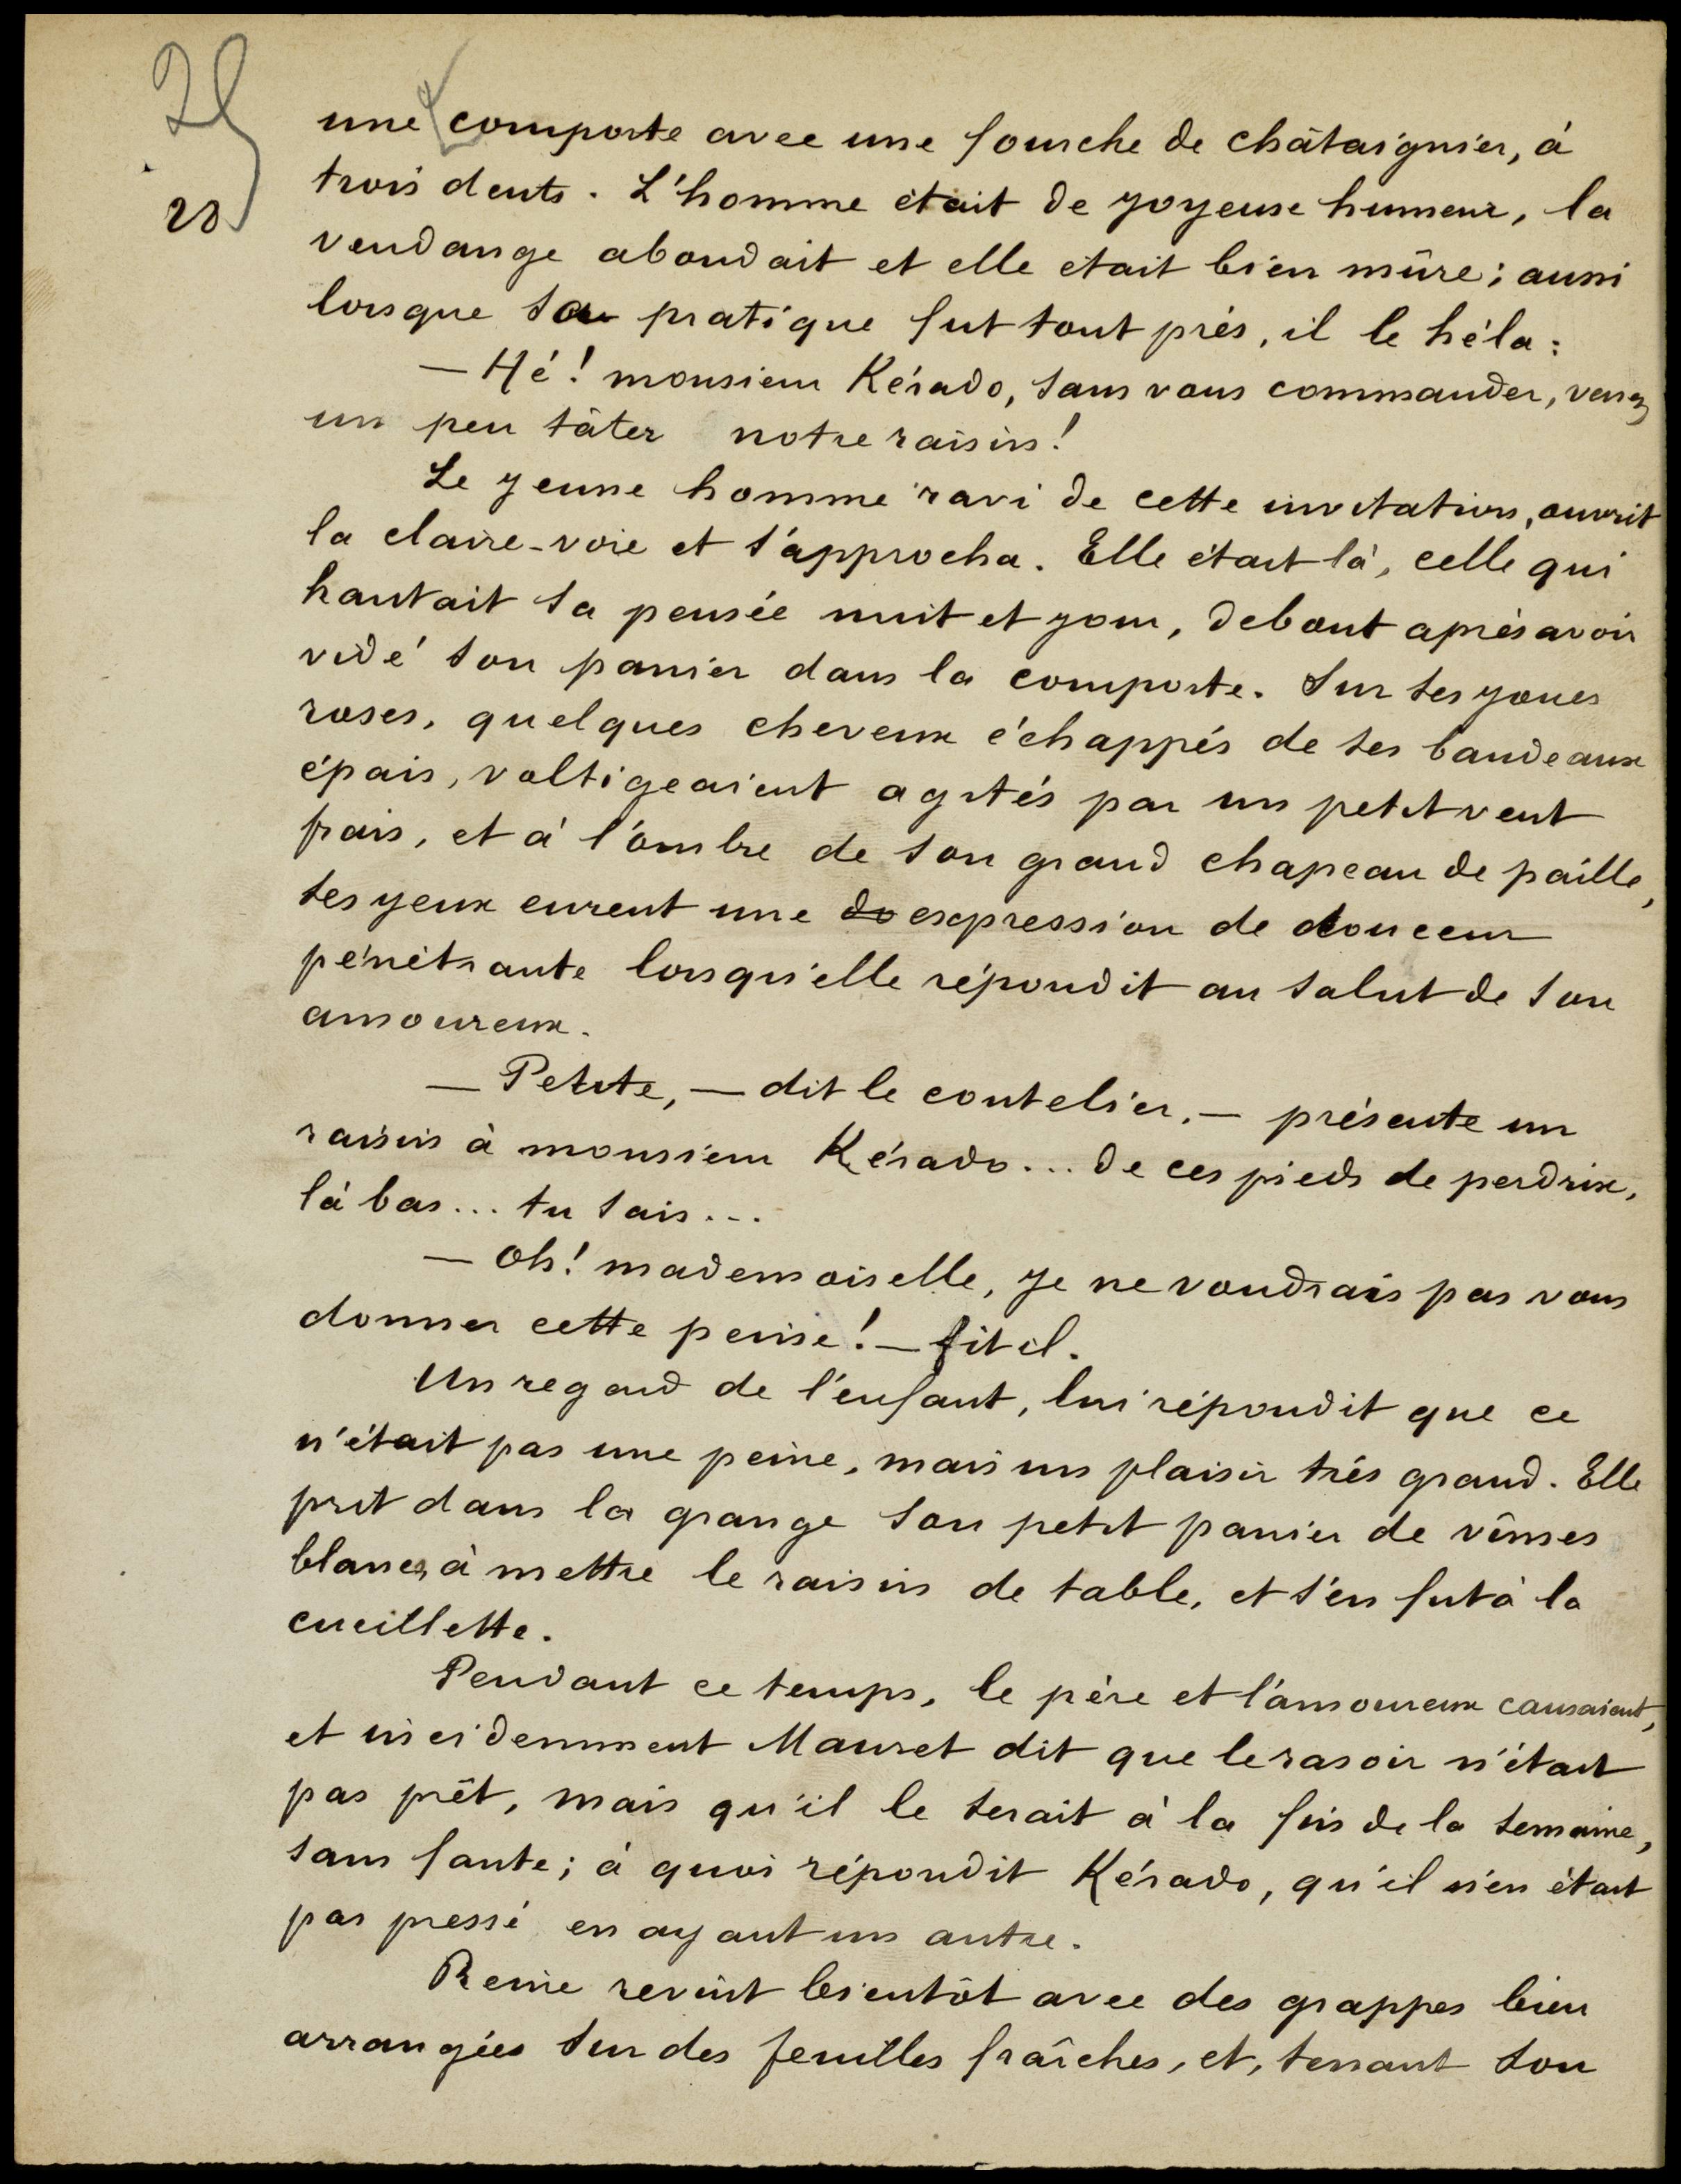 25
28
une comporte avec une fourche de châtaignier, à
trois dents. L'homme était de joyeuse humeur, la
vendange abondait et elle était bien mûre; aussi
lorsque sa pratique fut tout près, il le héla:
— Hé! monsieur Kérado, sans vous commander, venez
un peu tâter notre raisin!
Le jeune homme ravi de cette invitation, ouvrit
la claire-voie et s'approcha. Elle était là, celle qui
hantait sa pensée nuit et jour, debout après avoir
vidé son panier dans la comporte. Sur ses joues
roses, quelques cheveux échappés de ses bandeaux
épais, voltigeaient agités par un petit vent
frais, et à l'ombre de son grand chapeau de paille,
ses yeux eurent une do expression de douceur
pénétrante lorsqu'elle répondit au salut de son
amoureux.
— Petite, — dit le coutelier, — présente un
raisin à monsieur Kérado... de ces pieds de perdrix,
là bas... tu sais...
— Oh! mademoiselle, je ne voudrais pas vous
donner cette peine! — fit il.
Un regard de l'enfant, lui répondit que ce
n'était pas une peine, mais un plaisir très grand. Elle
prit dans la grange son petit panier de vîmes
blancs, à mettre le raisin de table, et s'en fut à la
cueillette.
Pendant ce temps, le père et l'amoureux causaient,
et incidemment Mauret dit que le rasoir n'était
pas prêt, mais qu'il le serait à la fin de la semaine,
sans faute; à quoi répondit Kérado, qu'il n'en était
pas pressé en ayant un autre.
Reine revint bientôt avec des grappes bien
arrangées sur des feuilles fraîches, et, tenant son